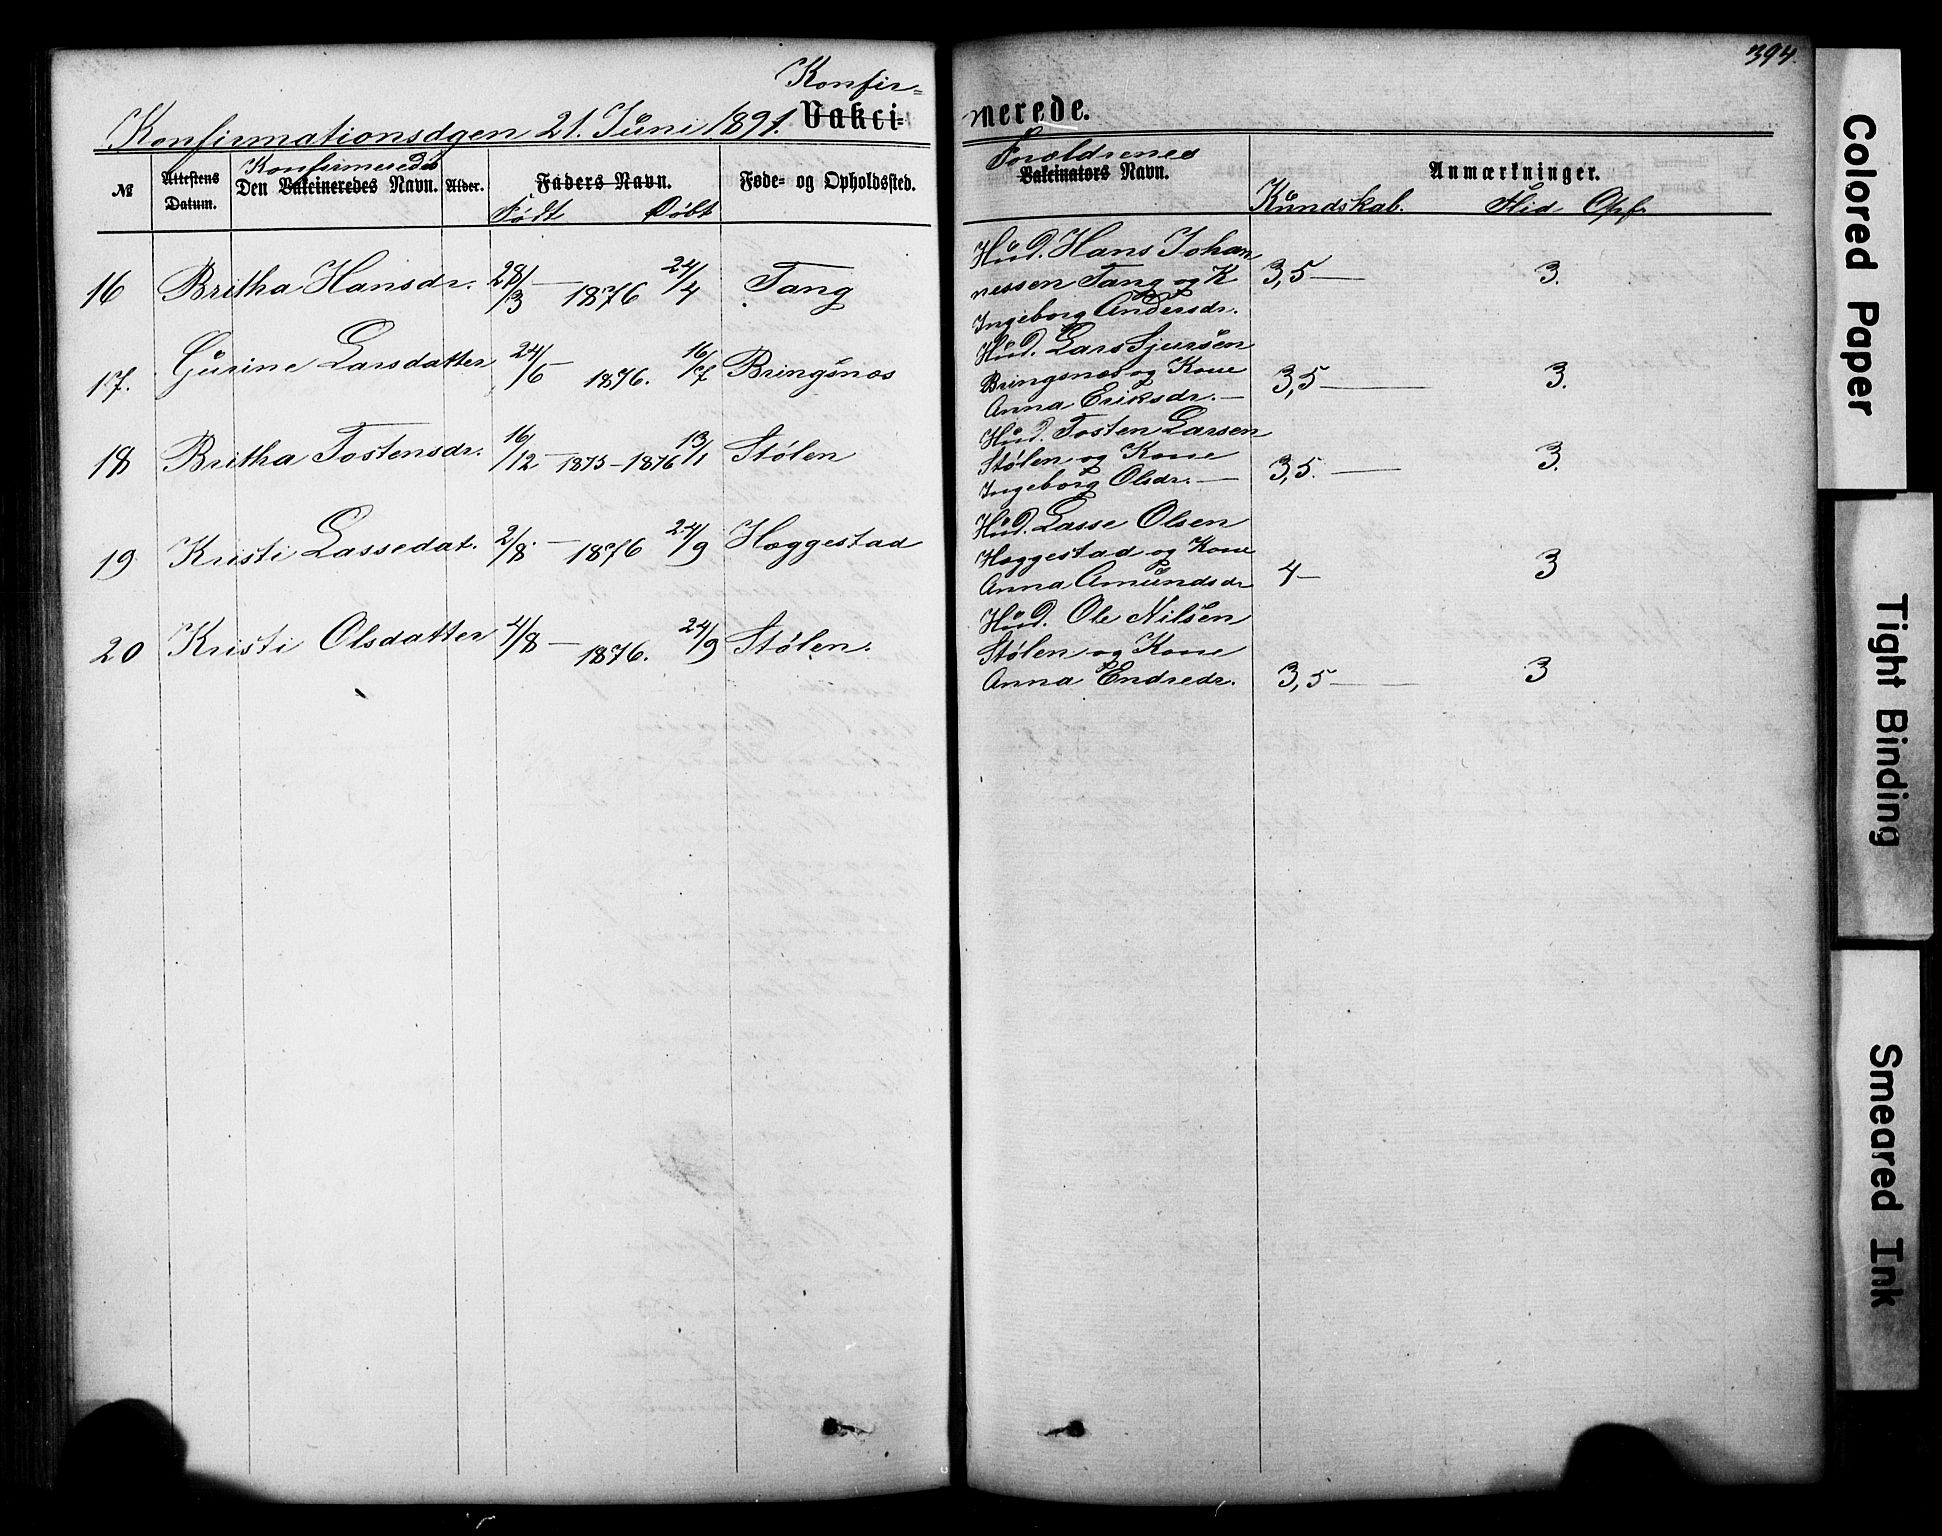 394.
Konfir=
Konfirmationsdgen 21. Juni 1891. Vakci= merede.
№ Attestens Datum. Konfirmeredes Den Vakcineredes Navn. Alder. Faders Navn. Føde= og Opholdssted. Forældrenes Vakcinators Navn. Anmærkninger.
Født Døbt Kundskab. Flid Opf.
16 Britha Hansdr. 28/3 – 1876 24/4 Tang
Hud. Hans Johan
nessen Tang og K 3,5 — 3.
Ingeborg Andersdr.
17. Gurine Larsdatter 24/6 – 1876. 16/7 Bringsnæs
Hud. Lars Sjursen
Bringsnæs og Kone 3,5 — 3.
Anna Eriksdr. —
18 Britha Tostensdr. 16/12 – 1875 – 1876 13/1 Stølen
Hud. Tosten Larsen
Stølen og Kone 3,5. — 3.
Ingeborg Olsdr. —
19 Kristi Lassedat. 2/8. – 1876 24/9 Hæggestad
Hud. Lasse Olsen
Hæggestad og Kone
Anna Amundsdr 4 – 3
20 Kristi Olsdatter 4/8 – 1876. 24/9 Stølen.
Hud. Ole Nilsen
Stølen og Kone
Anna Endredr. 3,5 — 3
Colored Paper
Tight Binding
Smeared Ink